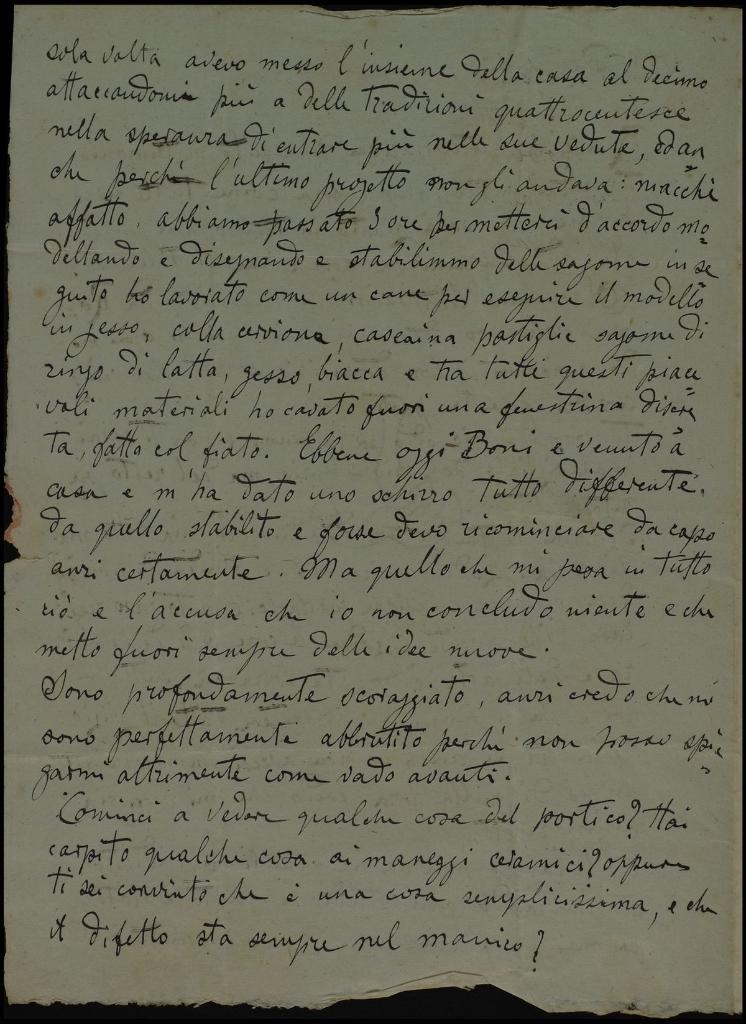 sola volta avevo messo l'insieme della casa al decimo
attaccandomi più a delle tradizioni quattrocentesce
nella speranza di entrare più nelle sue vedute, ed an
che perchè l'ultimo progetto non gli andava: macchè
affatto, abbiamo passato 3 ore per metterci d'accordo mo=
dellando e disegnando e stabilimmo delle sagome in se=
guito ho lavorato come un cane per eseguire il modello
in gesso, colla cerviona, caseaina pastiglie sagome di
zingo di latta, gesso, biacca e tra tutti questi piace=
voli materiali ho cavato fuori una fenestrina discre=
ta, fatta col fiato. Ebbene oggi Boni e venuto a
casa e m'ha dato uno schizzo tutto differente
da quello stabilito e forse devo ricominciare da capo
anzi certamente. Ma quello che mi pesa in tutto
ciò e l'accusa che io non concludo niente e che
metto fuori sempre delle idee nuove.
Sono profondamente scoraggiato, anzi credo che mi
sono perfettamente abbrutito perchè non posso spie=
garmi altrimente come vado avanti.
Cominci a vedere qualche cosa del portico? Hai
carpito qualche cosa ai maneggi ceramici? oppure
ti sei convinto che è una cosa semplicissima, e che
il difetto sta sempre nel manico?